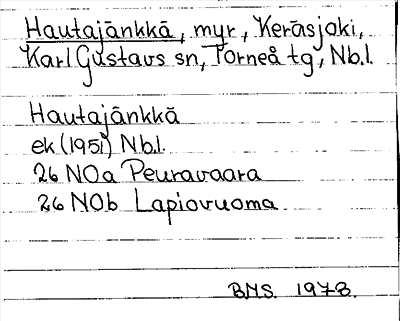 Hautajänkkä, myr, Keräsjoki,
Karl Gustavs sn, Torneå tg, Nb.l.
Hautajänkkä
ek (1951) Nb.l.
26 NOa Peuravaara
26 NOb Lapiovuoma
BMS. 1978.